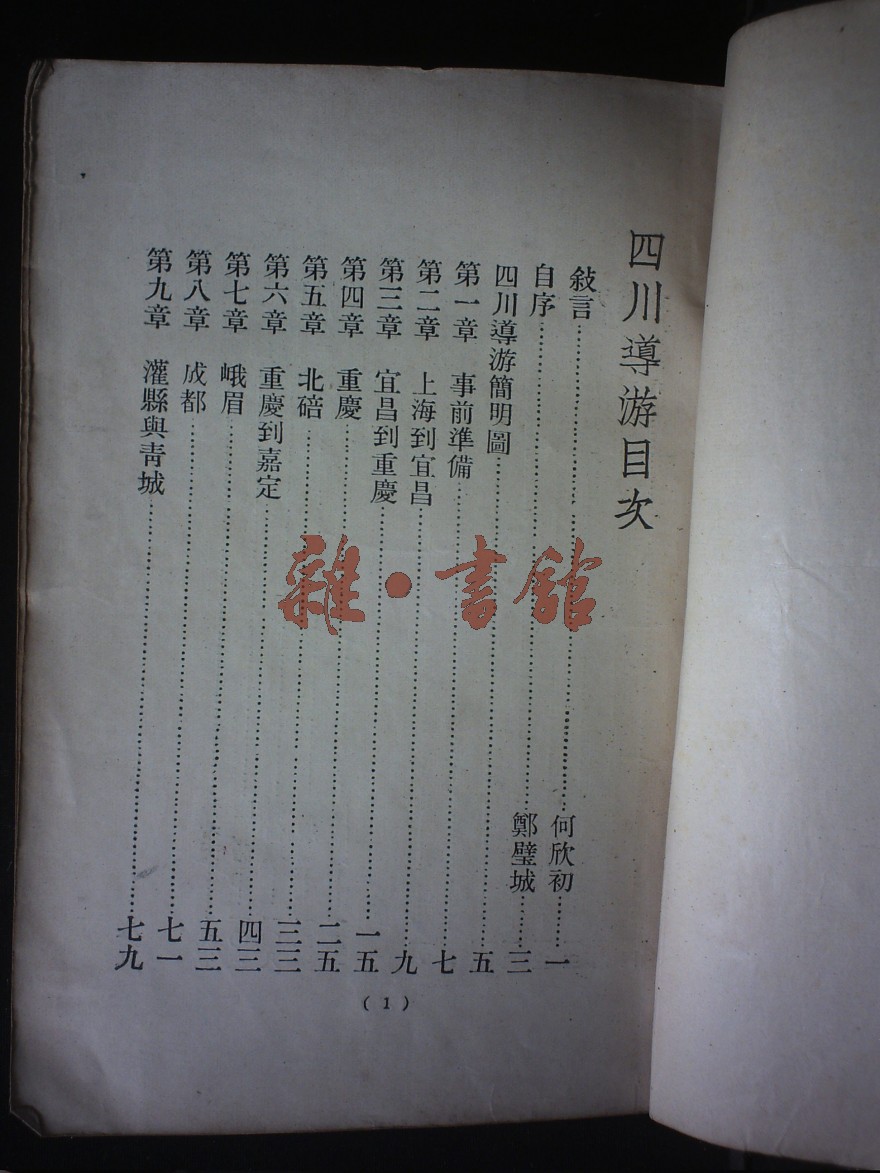 四川導游目次
敍言……何欣初……一
自序……鄭璧城……三
四川導游簡明圖……五
第一章 事前準備……七
第二章 上海到宜昌……九
第三章 宜昌到重慶……一五
第四章 重慶……二五
第五章 北碚……三三
第六章 重慶到嘉定……四三
第七章 峨眉……五三
第八章 成都……七一
第九章 灌縣與靑城……七九
(1)
雜·書館